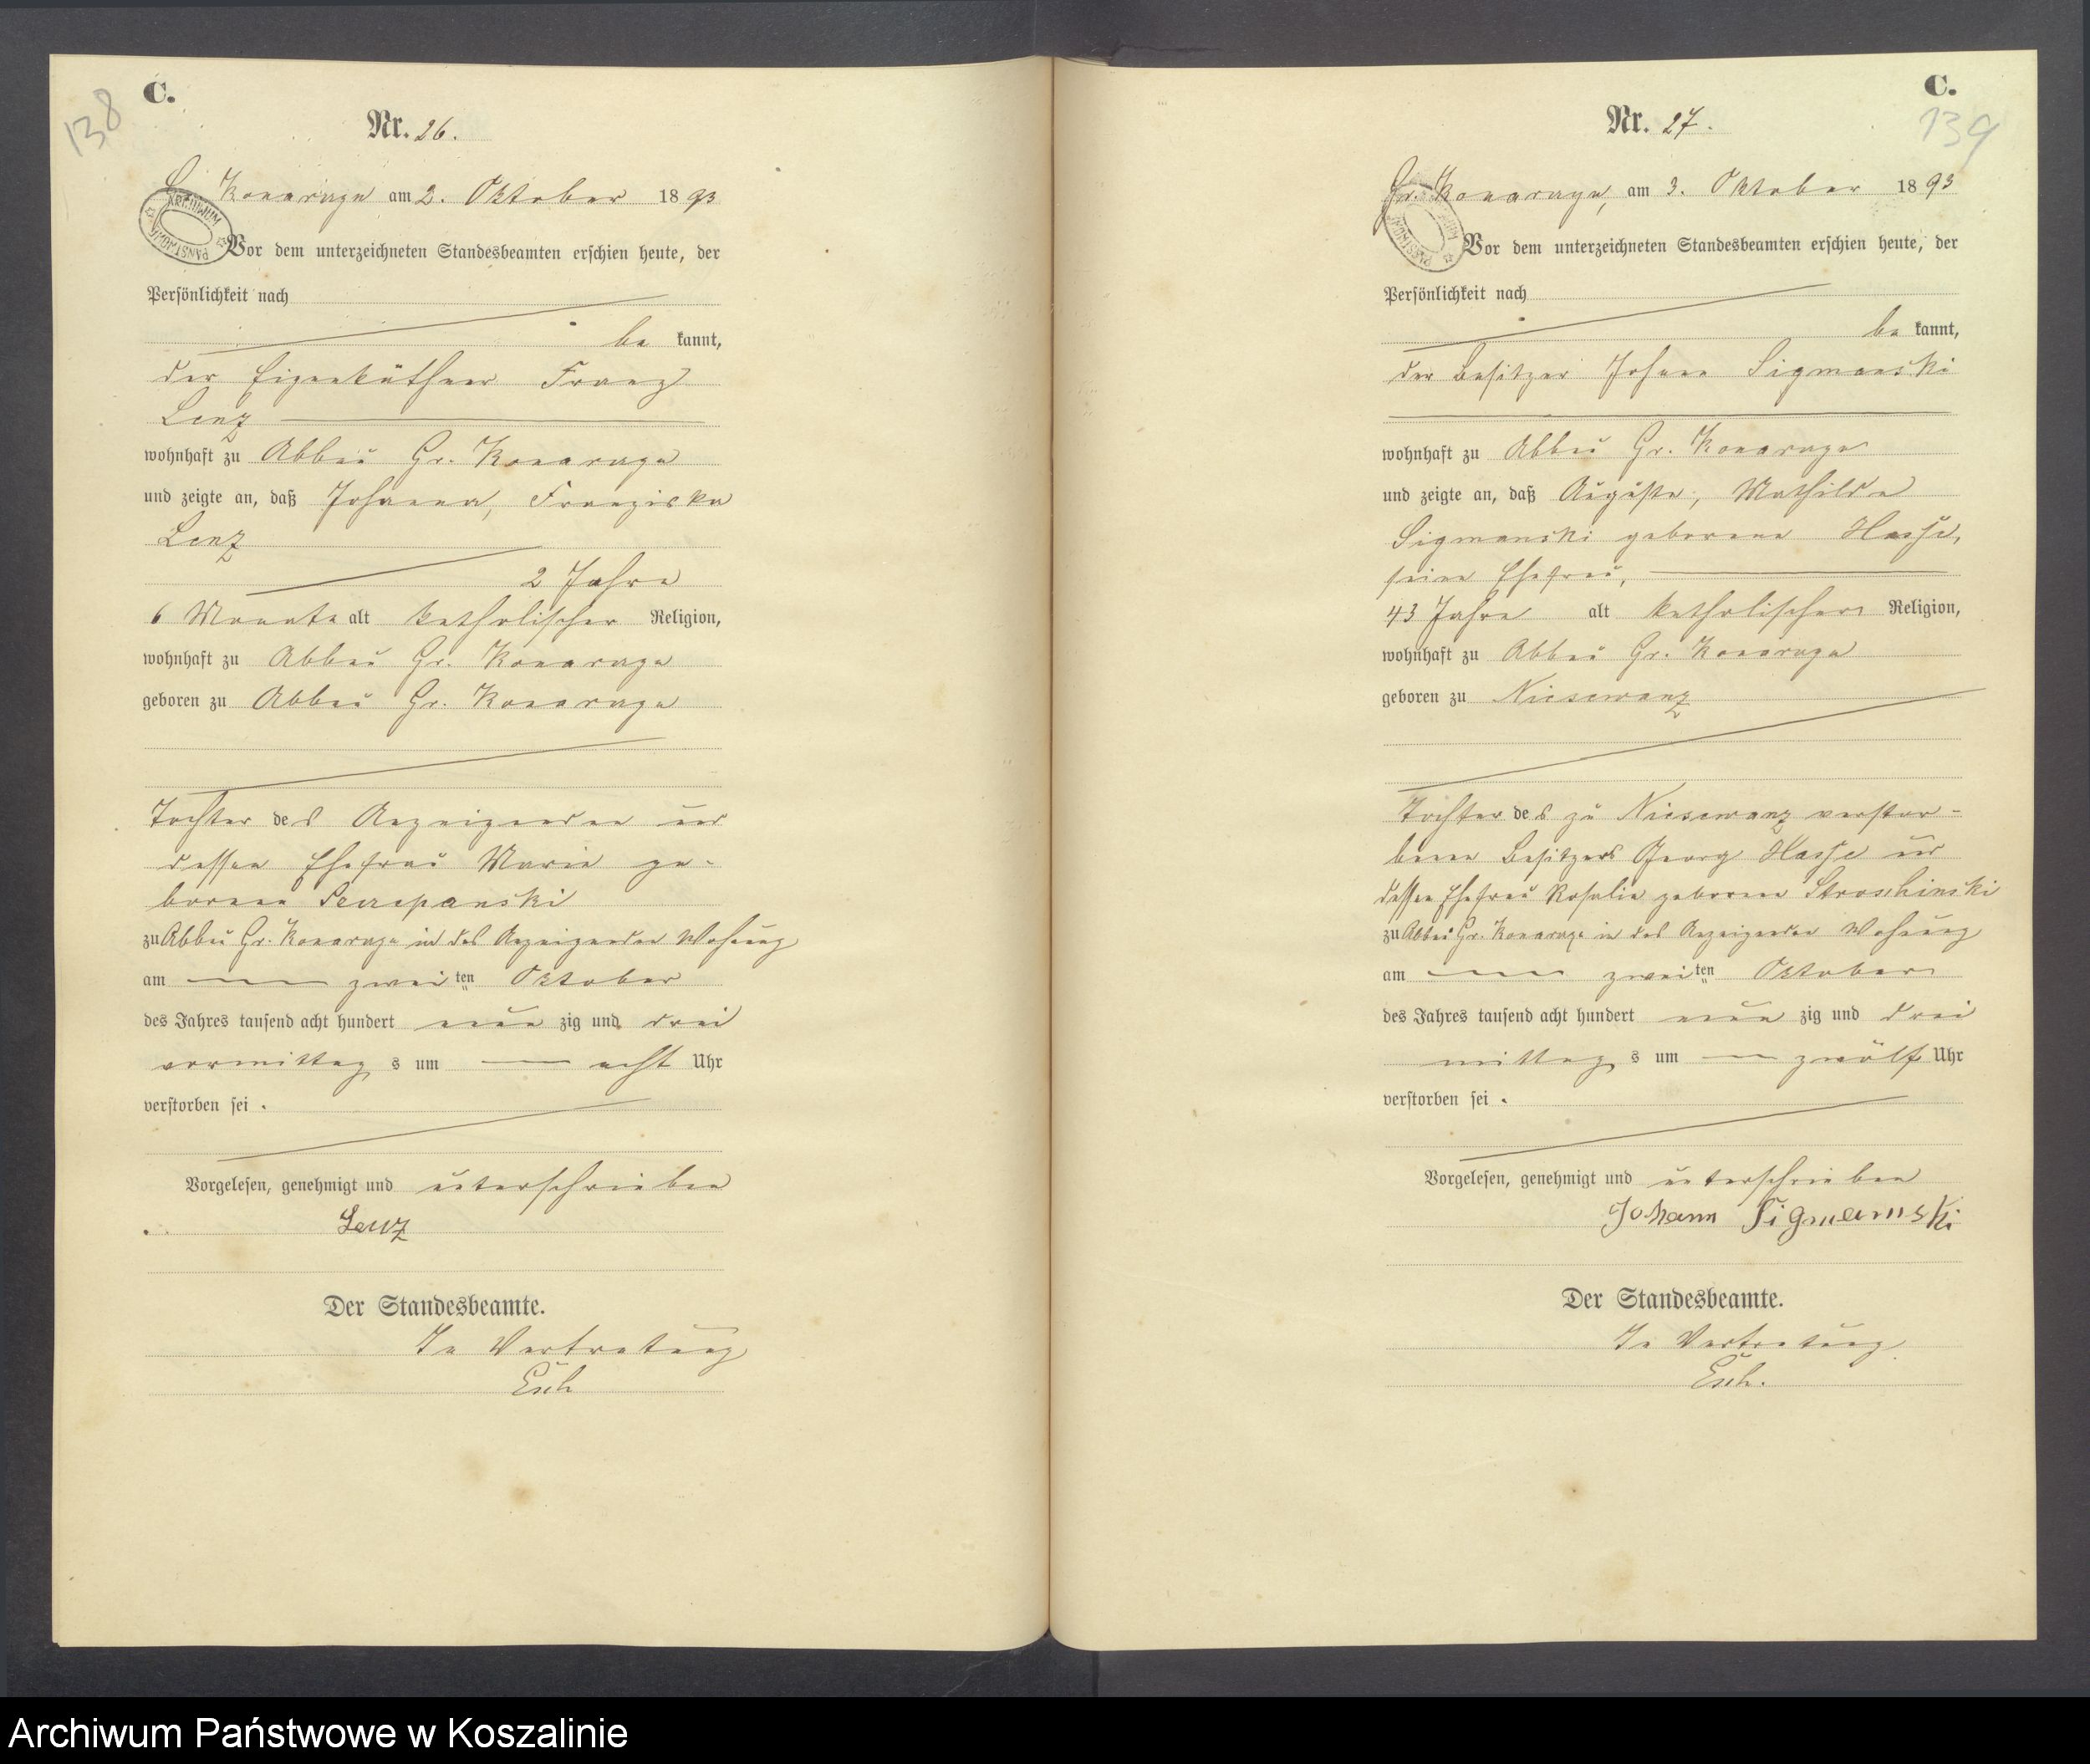 138
C.
Nr. 26.
Gr. Konarczyn am 2. Oktober 1893
ARCHIWUM PAŃSTWOWE
Vor dem unterzeichneten Standesbeamten erschien heute, der
Persönlichkeit nach
be kannt,
der Eigenkäthner Franz
Lenz
wohnhaft zu Abbau Gr. Konarczyn
und zeigte an, daß Johanna, Franziska
Lenz
2 Jahre
6 Monate alt katholischer Religion,
wohnhaft zu Abbau Gr. Konarczyn
geboren zu Abbau Gr. Konarczyn
Tochter des Anzeigenden und
dessen Ehefrau Marie ge-
borene
zu Abbau Gr. Konarczyn in des Anzeigenden Wohnung
am zwei ten Oktober
des Jahres tausend acht hundert neun zig und drei
vormittag s um acht Uhr
verstorben sei.
Vorgelesen, genehmigt und unterschrieben
Lenz
Der Standesbeamte.
In Vertretung
C.
139
Nr. 27.
Gr. Konarczyn, am 3. Oktober 1893
Vor dem unterzeichneten Standesbeamten erschien heute, der
Persönlichkeit nach
be kannt,
der Besitzer Johann Sigmanski
wohnhaft zu Abbau Gr. Konarczyn
und zeigte an, daß Auguste, Mathilde
Sigmanski geborene Hasse,
seine Ehefrau,
43 Jahre alt katholischer Religion,
wohnhaft zu Abbau Gr. Konarczyn
geboren zu Niesewanz
Tochter des zu Niesewanz verstor-
benen Besitzers Georg Hasse und
dessen Ehefrau Rosalie geborene Stroschinski
zu Abbau Gr. Konarczyn in des Anzeigenden Wohnung
am zwei ten Oktober
des Jahres tausend acht hundert neun zig und drei
mittag s um zwölf Uhr
verstorben sei.
Vorgelesen, genehmigt und unterschrieben
Johann Sigmanski
Der Standesbeamte.
In Vertretung
Archiwum Państwowe w Koszalinie